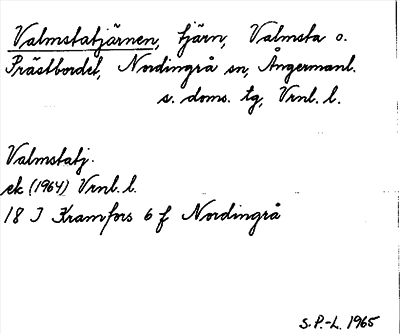 Valmstatjärnen, tjärn, Valmsta o.
Prästbordet, Nordingrå sn, Ångermanl.
s. doms. tg, Vrnl. l.
Valmstatj.
ek (1964) Vrnl. l.
18 I Kramfors 6 f Nordingrå
S.P.-L. 1965